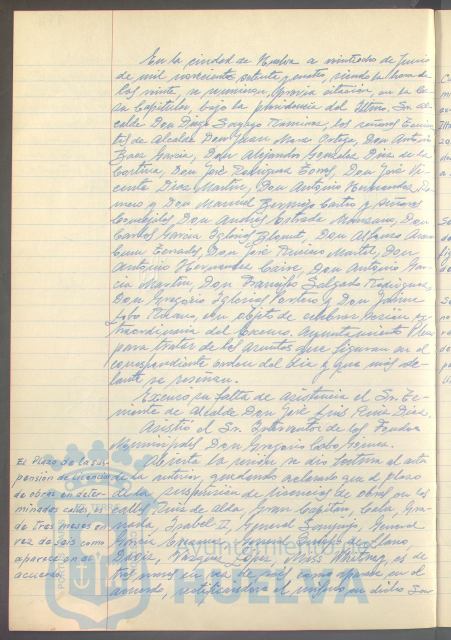 En la ciudad de Huelva a veintiocho de Junio
de mil novecientos setenta y cuatro, siendo la hora de
las veinte se reunieron, previa citación, en la Ca-
sa Capitular, bajo la presidencia del Iltmo. Sr. Al-
calde Don Diego Sayago Ramírez, los señores Tenien-
tes de Alcalde Don Juan Mora Ortega, Don Antonio
Báez García, Don Alejandro González Díaz de la
Cortina, Don José Rodríguez Don José Vi-
cente Díaz Martín, Don Antonio Hernández Ro-
mero y Don Manuel Bermejo Castro y Señores
Concejales Don Andrés Estrade Manzano, Don
Carlos García Iglesias Don Alfonso
Don José Martel, Don
Antonio Hernández Don Antonio Gar-
cía Martín, Don Francisco Salgado Rodríguez,
Don Gregorio Iglesias y Don Jaime
Lobo con objeto de celebrar sesión ex-
traordinaria del Excmo. Ayuntamiento Pleno
para tratar de los asuntos que figuran en el
correspondiente orden del día y que más ade-
lante se reseñan.
Excusó su falta de asistencia el Sr. Te-
niente de Alcalde Don José Luis Ruiz Díaz.
Asistió el Sr. Interventor de los Fondos
Municipales Don Gregorio Cabo
Abierta la sesión se dio lectura al acta
de la anterior quedando aclarado que el plazo
de la suspensión de licencias de obras en las
calles Ruiz de Alda, Gran Capitán, Cala, Gra-
nada, Isabel II, General Sanjurjo, General
General Queipo de Llano,
Vázquez López, Miss Whitney, es de
tres meses en vez de seis como aparece en el
acuerdo, rectificándose el mismo en dicho sen-
El Plazo de la sus-
pensión de Licencias
de obras en deter-
minadas calles es
de tres meses en
vez de seis como
aparece en el
acuerdo.
Ayuntamiento de
HUELVA